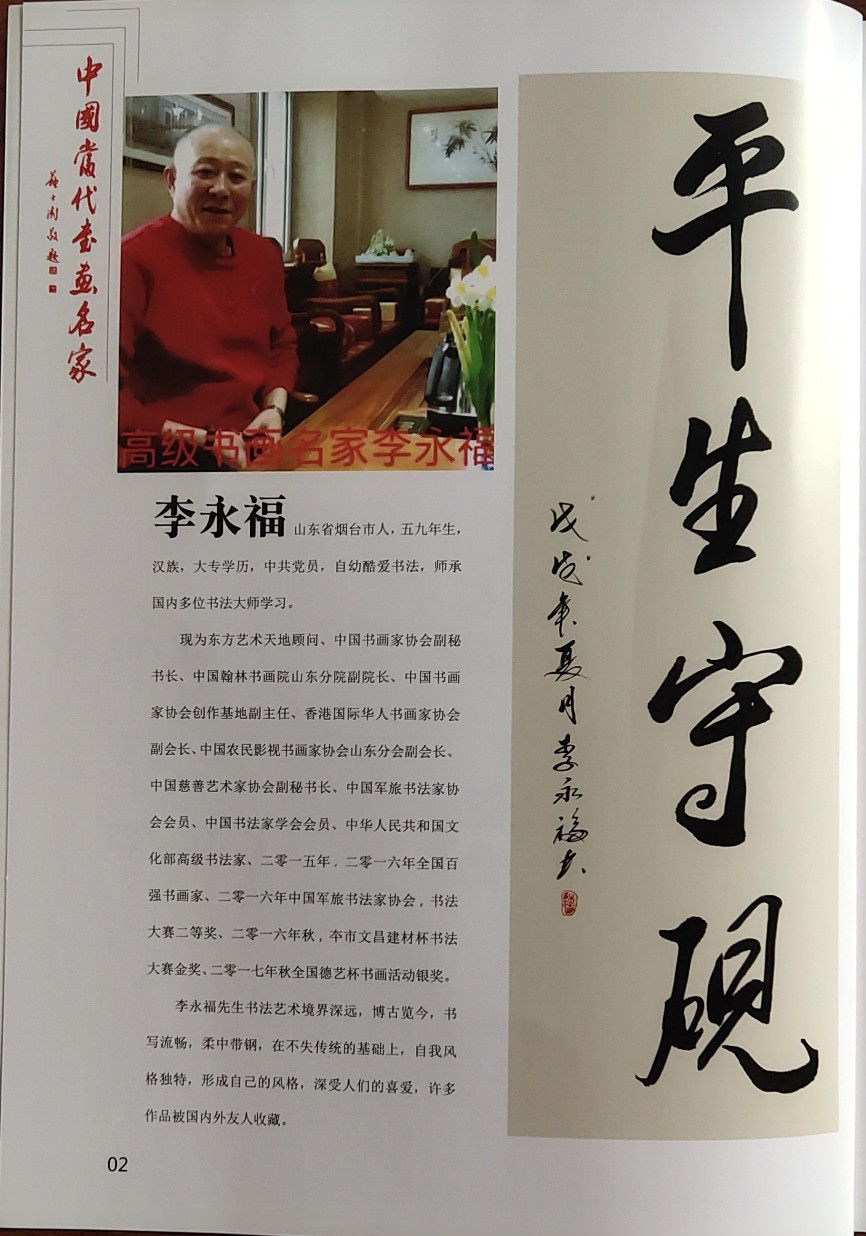 中國當代书画名家
高级书画名家李永福
李永福 山东省烟台市人，五九年生，
汉族，大专学历，中共党员，自幼酷爱书法，师承
国内多位书法大师学习。
现为东方艺术天地顾问、中国书画家协会副秘
书长、中国翰林书画院山东分院副院长、中国书画
家协会创作基地副主任、香港国际华人书画家协会
副会长、中国农民影视书画家协会山东分会副会长、
中国慈善艺术家协会副秘书长、中国军旅书法家协
会会员、中国书法家学会会员、中华人民共和国文
化部高级书法家、二零一五年，二零一六年全国百
强书画家、二零一六年中国军旅书法家协会，书法
大赛二等奖、二零一六年秋，夲市文昌建材杯书法
大赛金奖、二零一七年秋全国德艺杯书画活动银奖。
李永福先生书法艺术境界深远，博古览今，书
写流畅，柔中带钢，在不失传统的基础上，自我风
格独特，形成自己的风格，深受人们的喜爱，许多
作品被国内外友人收藏。
平生守砚
戊戌年夏月李永福书
02